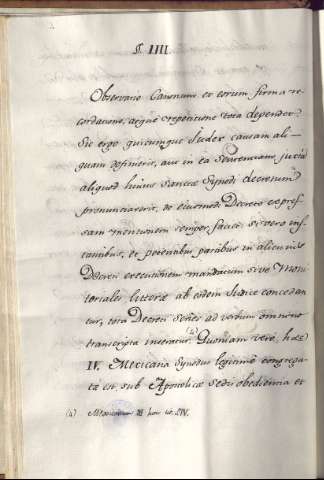 §. IIII.
Observatio Canonum et eorum firma re-
cordatione, atque repetitione tota dependet.
Sic ergo quicumque Judex causam ali-
quam definierit, aut in ea Sententiam juxta
aliquod huius sanctæ Synodi decretum
pronunciaverit, de eiusmodi Decreto expres-
sam mentionem semper faciet: si vero ins-
tantibus, et petentibus partibus in alicuius
Decreti executionem mandatum sive Moni-
toriales litteræ ab eodem Judice concedan-
tur, tota Decreti series ad verbum omnino
transcripta inseratur. (4) Quoniam vero hæc
IV. Mexicana Synodus legitime congrega-
ta est, sub Apostolicæ Sedis obediencia et
(4) Mexicanum III hoc tit. § IV.